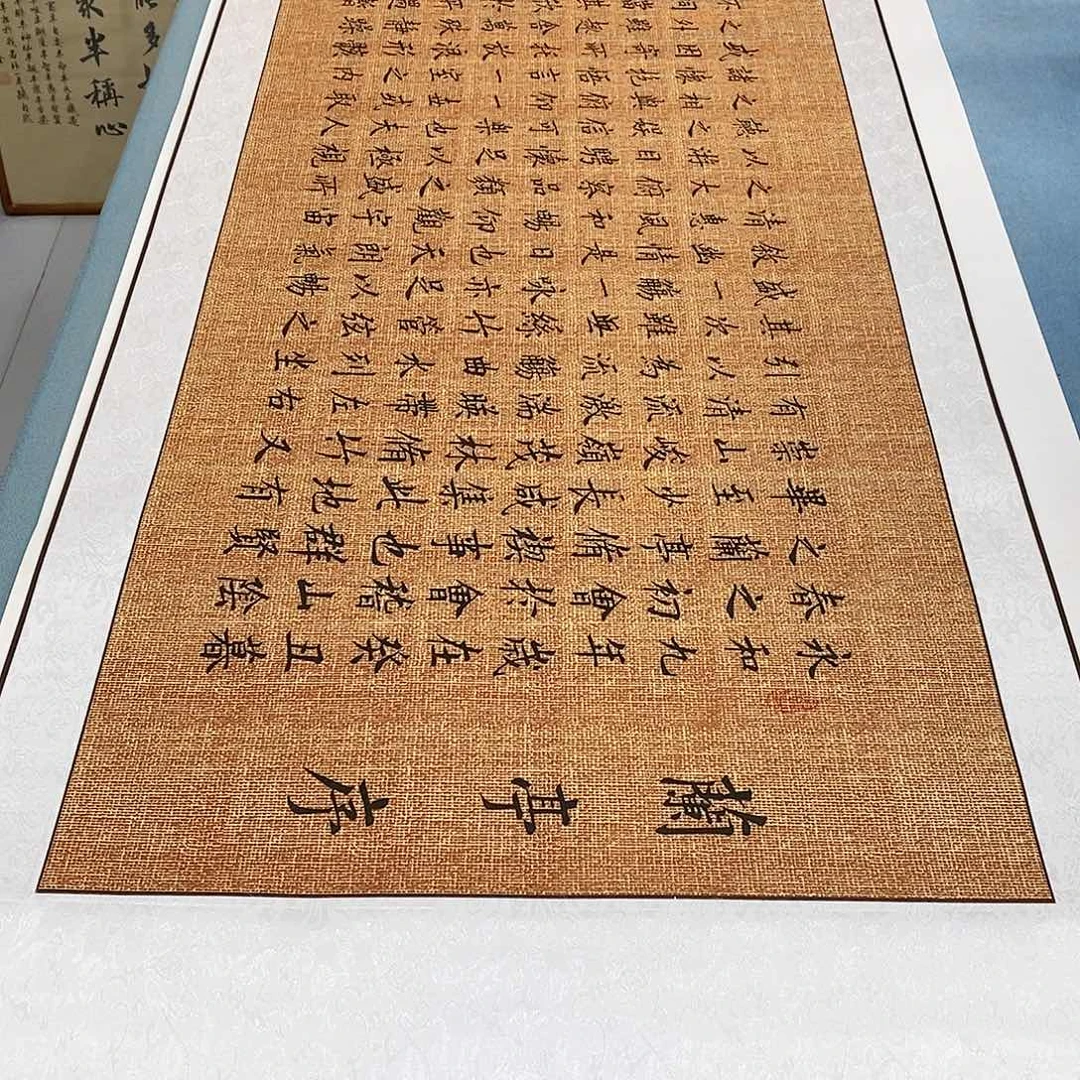 蘭亭序
永和九年歲在癸丑暮
春之初會於會稽山陰
之蘭亭脩禊事也群賢
畢至少長咸集此地有
崇山峻嶺茂林脩竹又
有清流激湍暎帶左右
引以為流觴曲水列坐
其次雖無絲竹管弦之
盛一觴一詠亦足以暢
敘幽情是日也天朗氣
清惠風和暢仰觀宇宙
之大俯察品類之盛所
以遊目騁懷足以極視
聽之娛信可樂也夫人
之相與俯仰一世或取
諸懷抱悟言一室之內
或因寄所託放浪形骸
之外雖趣舍萬殊靜躁
半稱心